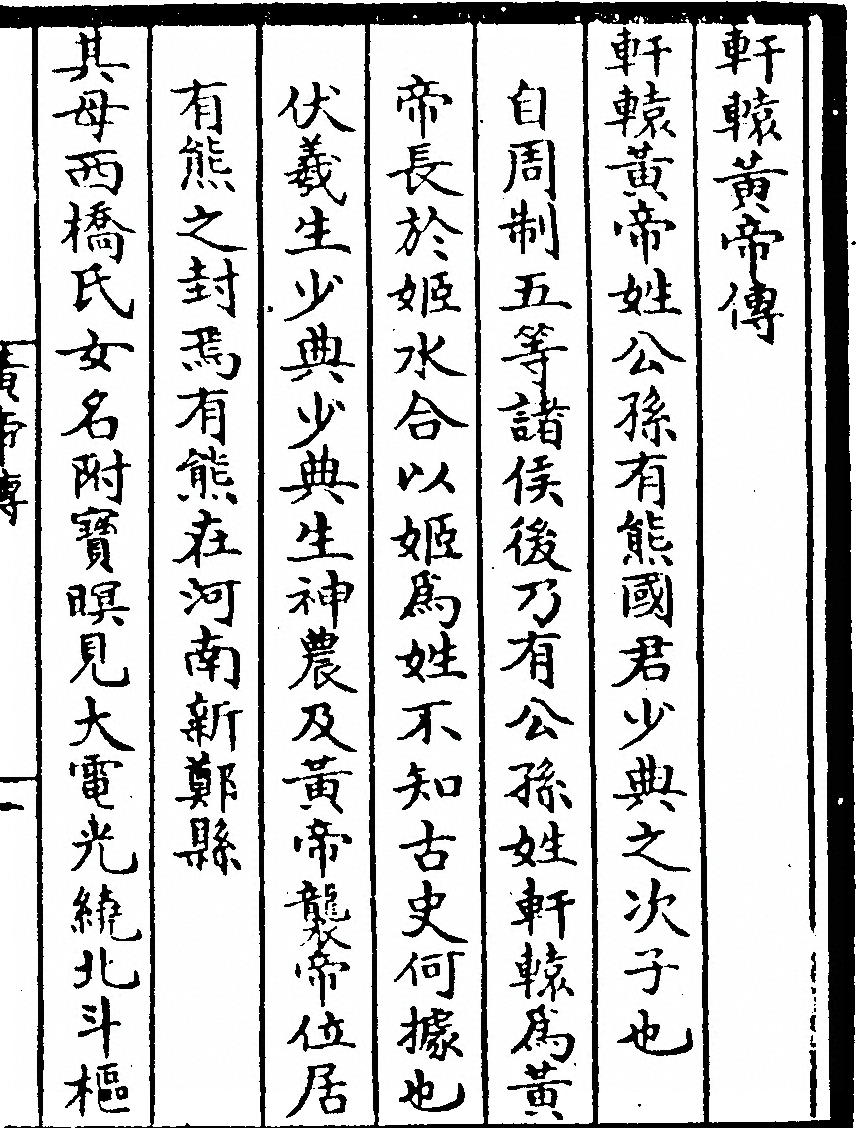 軒轅黃帝傳
軒轅黃帝姓公孫有熊國君少典之次子也
自周制五等諸侯後乃有公孫姓軒轅爲黃
帝長於姬水合以姬爲姓不知古史何據也
伏羲生少典少典生神農及黃帝襲帝位居
有熊之封焉有熊在河南新鄭縣
其母西橋氏女名附寶暝見大電光繞北斗樞
黃帝傳
二